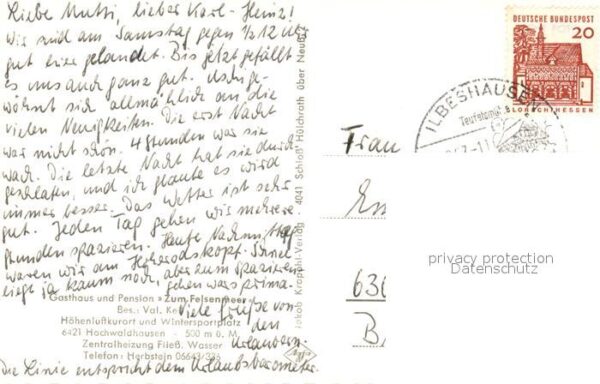 Liebe Mutti, lieber Karl-Heinz!
Wir sind am Samstag gegen ½12 Uhr
gut hier gelandet. Bis jetzt gefällt
es uns auch ganz gut. ge-
wöhnt sich allmählich an die
vielen Neuigkeiten. Die erst Nacht
war nicht schön. 4 Stunden war sie
wach. Die letzte Nacht hat sie durch
geschlafen, und ich glaube es wird
immer besser. Das Wetter ist sehr
gut. Jeden Tag gehen wir mehrere
Stunden spazieren. Heute Nachmittag
waren wir am Hoherodskopf. Schnee
liegt ja kaum noch, aber zum Spazieren
gehen wars prima.
Viele Grüße von
den
Urlaubern.
Die Linie entspricht dem Urlaubsbarometer.
Gasthaus und Pension »Zum Felsenmeer«
Bes.: Val.
Höhenluftkurort und Wintersportplatz
6421 Hochwaldhausen - 500 m ü. M.
Zentralheizung Fließ. Wasser
Telefon: Herbstein 06643/336
Jakob Krapohl-Verlag 4041 Schloß Hülchrath über Neuß
Agfa
DEUTSCHE BUNDESPOST
20
LORSCH/HESSEN
ILBESHAUSEN
Frau
636
B
privacy protection
Datenschutz